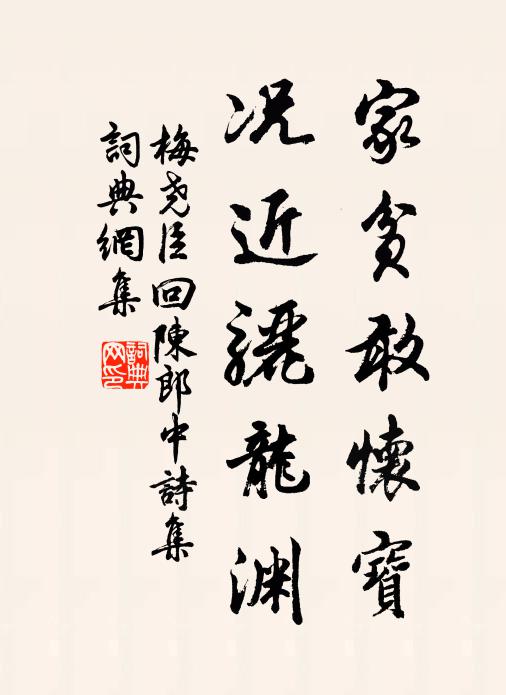 家貧敢懷寶
况近驪龍淵
梅堯臣回陳郎中詩集
詞典網集
詞典網印